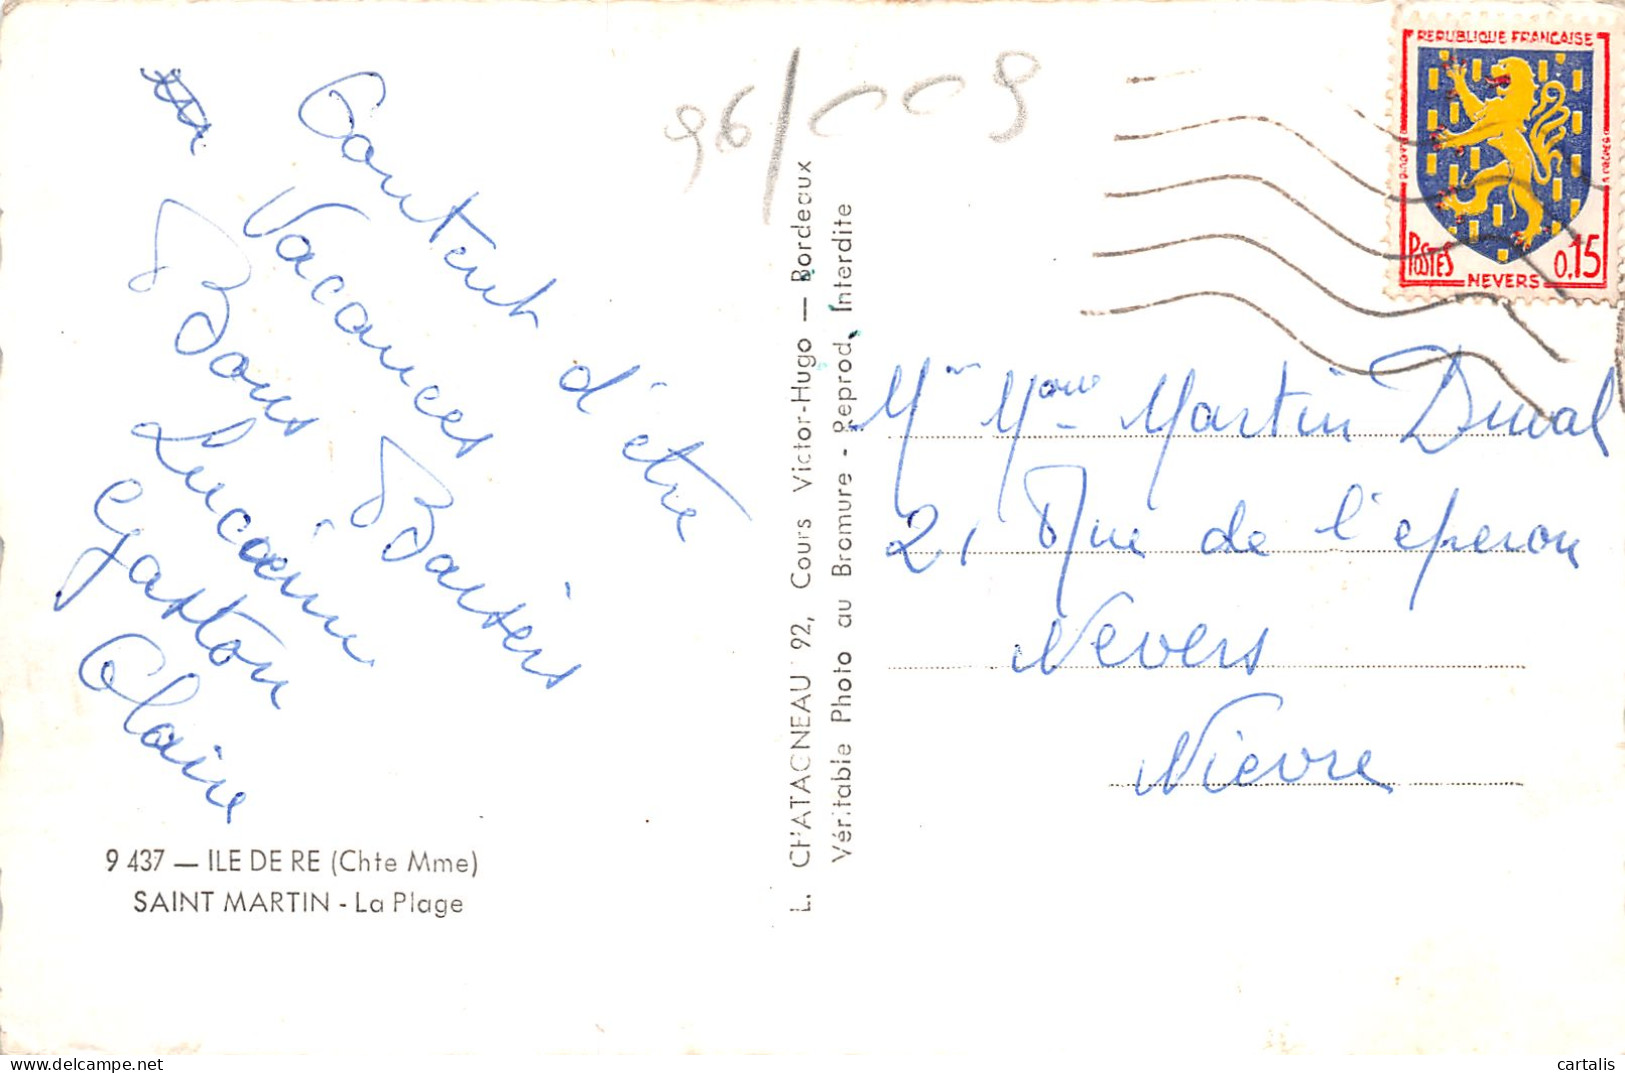 Content d'être
en Vacances
Bons Baisers
Lucaine
Gaston
Claire
9 437 — ILE DE RE (Chte Mme)
SAINT MARTIN - La Plage
96/009
L. CHATAGNEAU 92, Cours Victor-Hugo — Bordeaux
Véritable Photo au Bromure - Reprod. Interdite
REPUBLIQUE FRANCAISE
POSTES
0,15
NEVERS
Mr Mme Martin Duval
21 Rue de l'eperon
Nevers
Nièvre
cartalis